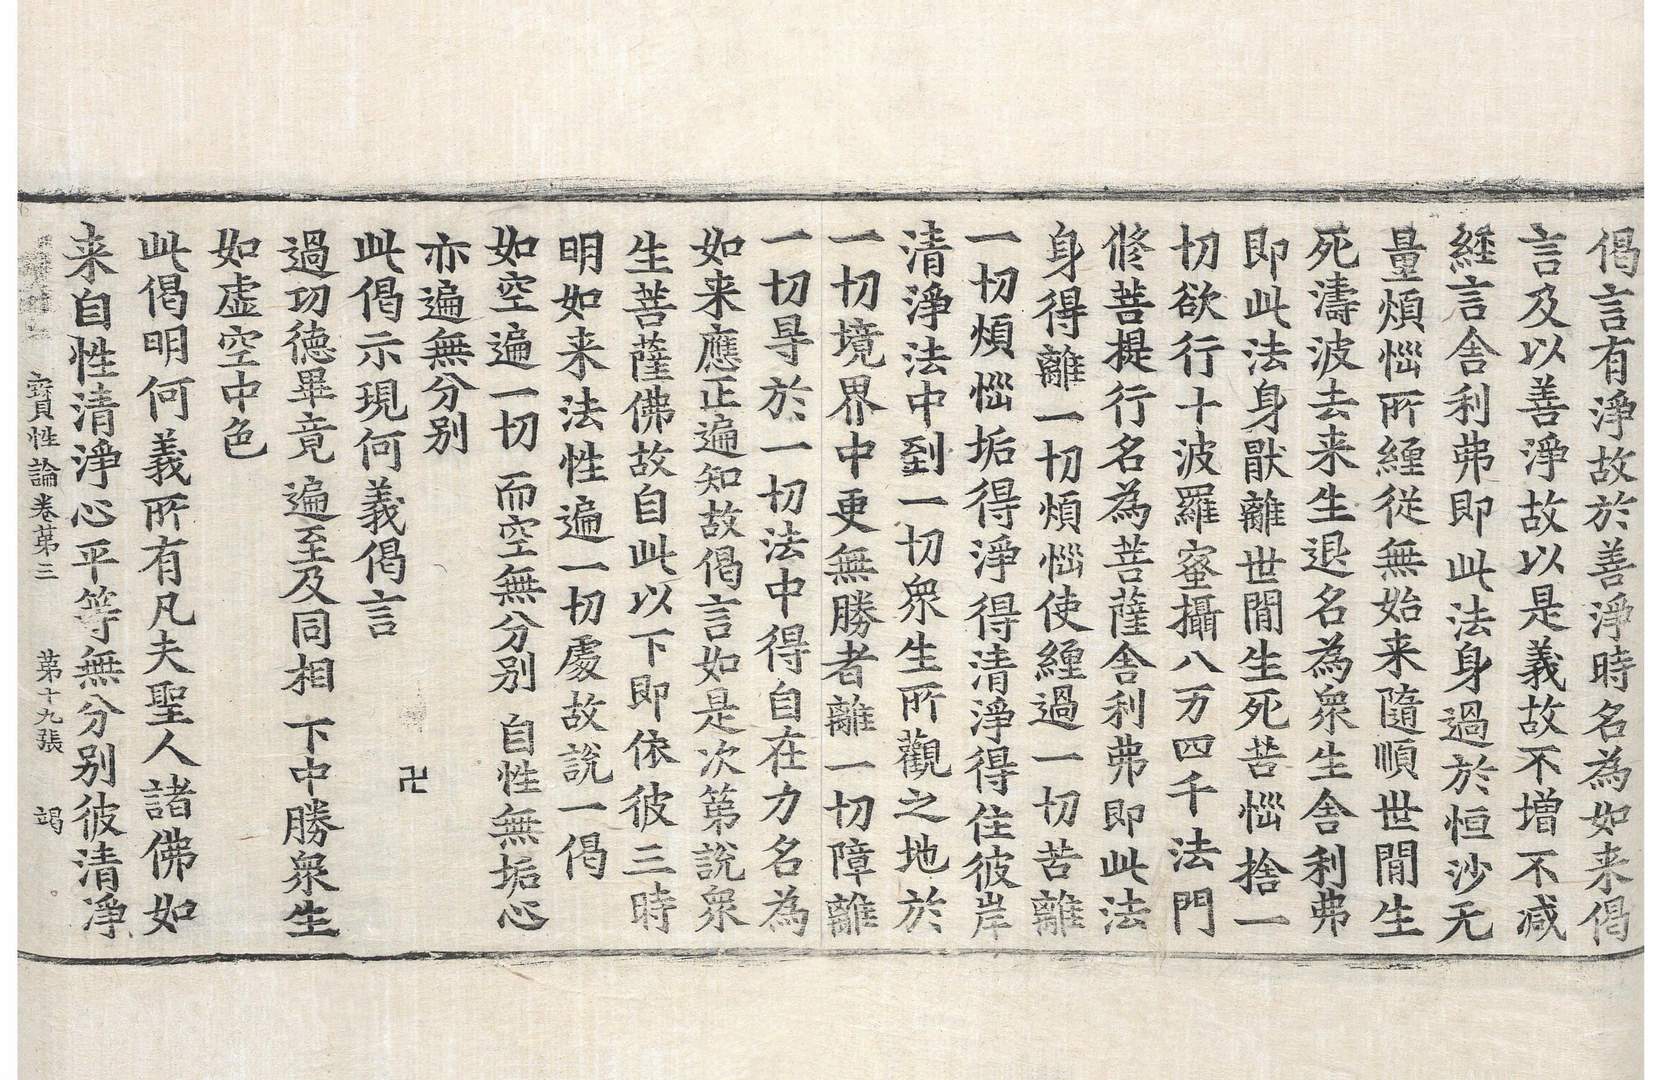 偈言有淨故於善淨時名為如来偈
言及以善淨故以是義故不增不減
經言舍利弗即此法身過於恒沙无
量煩惱所纏從無始来隨順世間生
死濤波去来生退名為衆生舍利弗
即此法身猒離世間生死苦惱捨一
切欲行十波羅蜜攝八万四千法門
修菩提行名為菩薩舍利弗即此法
身得離一切煩惱使纏過一切苦離
一切煩惱垢得淨得清淨得住彼岸
清淨法中到一切衆生所觀之地於
一切境界中更無勝者離一切障離
一切㝵於一切法中得自在力名為
如来應正遍知故偈言如是次第說衆
生菩薩佛故自此以下即依彼三時
明如来法性遍一切處故說一偈
如空遍一切 而空無分别 自性無垢心
亦遍無分别
此偈示現何義偈言
卍
過功德畢竟 遍至及同相 下中勝衆生
如虛空中色
此偈明何義所有凡夫聖人諸佛如
来自性清淨心平等無分别彼清淨
寶性論卷第三 第十九張 竭